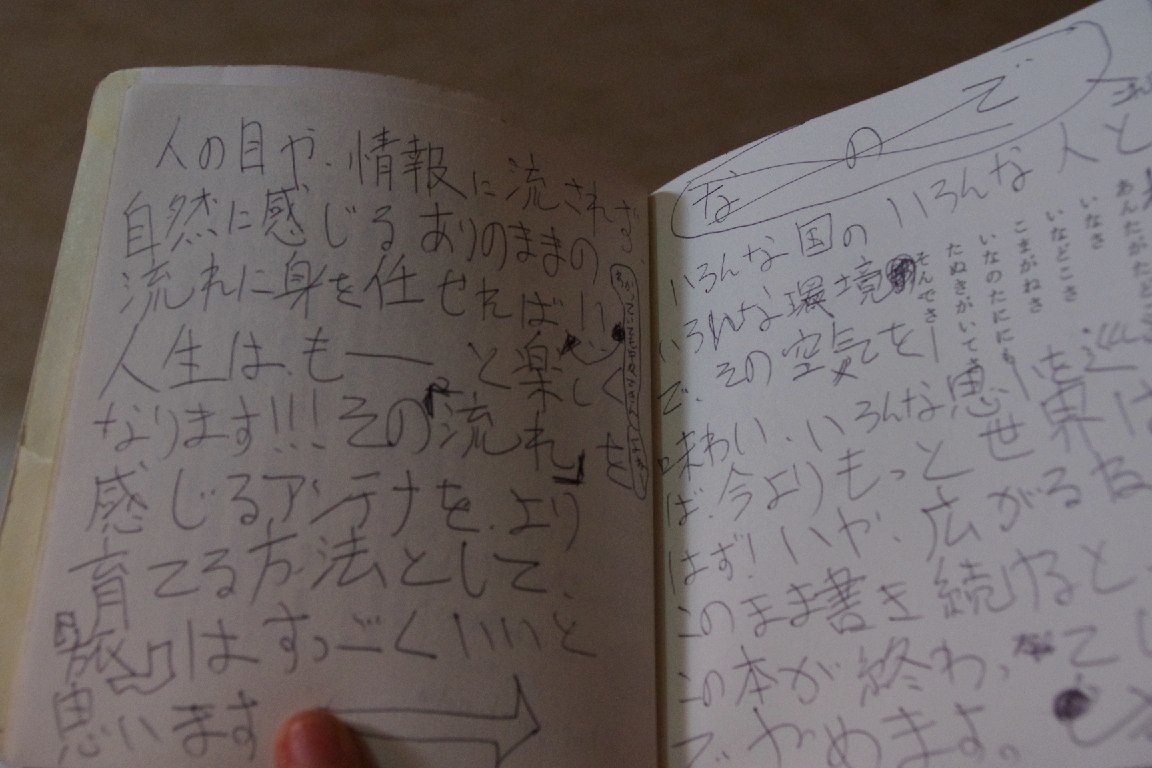 人の目や、情報に流されず
自然に感じるありのままの
流れに身を任せれば、
人生は、も——っと楽しく
なります!!!その「流れ」を
感じるアンテナを、より
育てる方法として、
『旅』はすっごくいいと
思います
なので
いろんな国のいろんな人と
いろんな環境
で、その空気を
味わい、いろんな思
ば、今よりもっと世界は
はず!いや、広がる
このまま書き続けると、
この本が終わ
でやめまよ。
あんたがたど
いなさ
いなどこさ
こまがねさ
いなのたににも
たぬきがいてさ
そんでさ